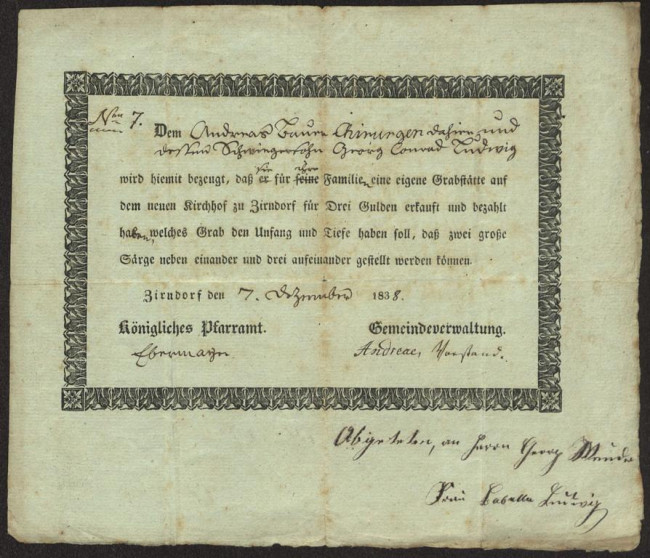 Num 7.
Dem Andreas Bauer Chirurgen dahier und
dessen Schwiegersohn Georg Conrad Ludwig
sie ihre
wird hiemit bezeugt, daß er für seine Familien eine eigene Grabstätte auf
dem neuen Kirchhof zu Zirndorf für Drei Gulden erkauft und bezahlt
haben, welches Grab den Umfang und Tiefe haben soll, daß zwei große
Särge neben einander und drei aufeinander gestellt werden können.
Zirndorf den 7. Dezember 1838.
Königliches Pfarramt. Gemeindeverwaltung.
Ebermayer. Andreae, Vorstand.
Abgeteten, an Herrn Georg
Frau Babetta Ludwig